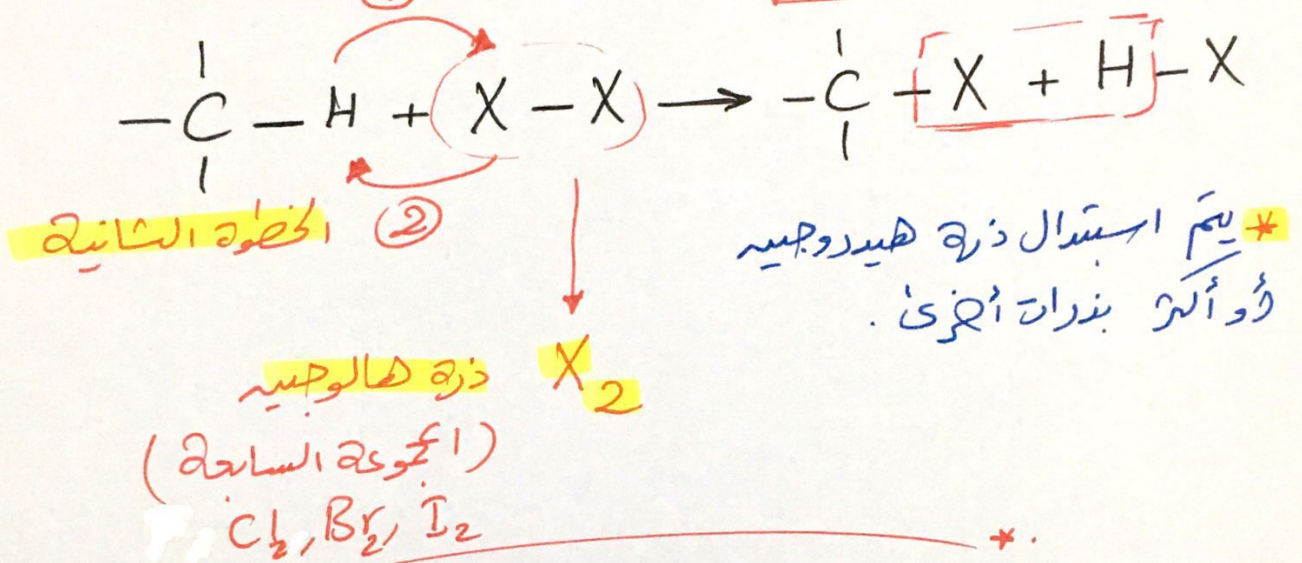 – C – H + X – X → – C – X + H – X
② الخطوة الثانية
* يتم استبدال ذرة هيدروجين
أو أكثر بذرات أخرى .
X₂ ذرة هالوجين
(المجموعة السابعة)
Cl₂, Br₂, I₂
*.